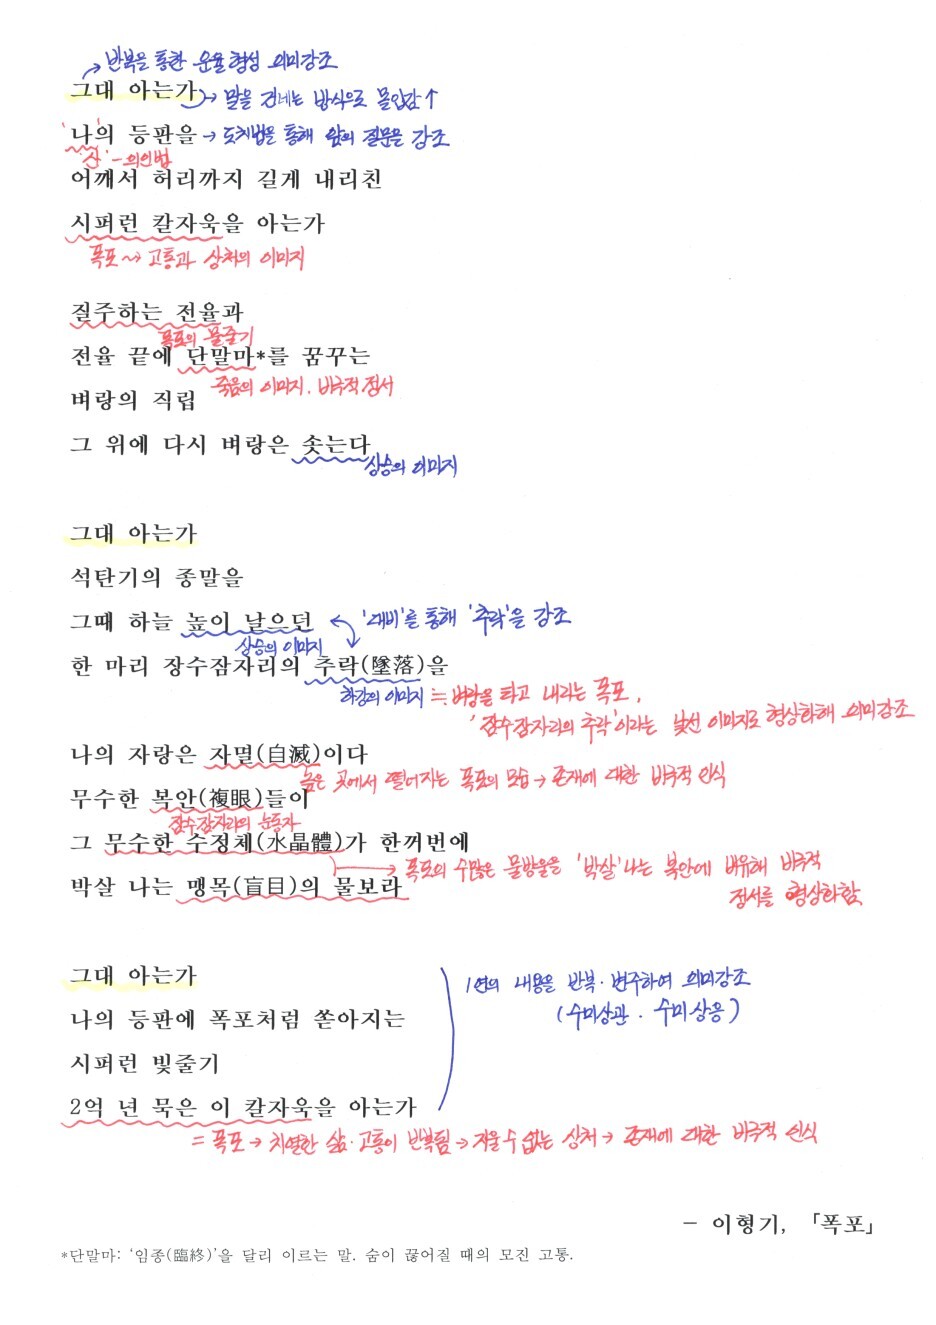 반복을 통한 운율 형성 의미강조
그대 아는가 → 말을 건네는 방식으로 몰입감↑
'나'의 등판을 → 도치법을 통해 앞의 질문을 강조
'산' - 의인법
어깨서 허리까지 길게 내리친
시퍼런 칼자욱을 아는가
폭포 ~> 고통과 상처의 이미지
질주하는 전율과
폭포의 물줄기
전율 끝에 단말마*를 꿈꾸는
죽음의 이미지. 비극적 정서
벼랑의 직립
그 위에 다시 벼랑은 솟는다
상승의 이미지
그대 아는가
석탄기의 종말을
그때 하늘 높이 날으던 '대비'를 통해 '추락'을 강조
상승의 이미지
한 마리 장수잠자리의 추락(墜落)을
하강의 이미지 ≒ 벼랑을 타고 내리는 폭포,
'장수잠자리의 추락'이라는 낯선 이미지로 형상화해 의미강조
나의 자랑은 자멸(自滅)이다
높은 곳에서 떨어지는 폭포의 모습 → 존재에 대한 비극적 인식
무수한 복안(複眼)들이
장수잠자리의 눈동자
그 무수한 수정체(水晶體)가 한꺼번에
→ 폭포의 수많은 물방울을 '박살'나는 복안에 비유해 비극적
박살 나는 맹목(盲目)의 물보라
정서를 형상화함
그대 아는가
1연의 내용을 반복·변주하여 의미강조
나의 등판에 폭포처럼 쏟아지는
(수미상관. 수미상응)
시퍼런 빛줄기
2억 년 묵은 이 칼자욱을 아는가
= 폭포 → 치열한 삶·고통이 반복됨 → 지울 수 없는 상처 → 존재에 대한 비극적 인식
- 이형기, 「폭포」
*단말마: '임종(臨終)'을 달리 이르는 말. 숨이 끊어질 때의 모진 고통.